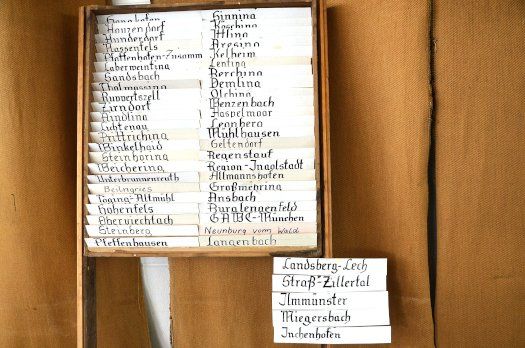 Hauzendorf
Hunderdorf
Massenfels
Laberweinting
Sandsbach
Ruppertszell
Zirndorf
Aindling
Pittriching
Winkelhaid
Steinhöring
Weichering
Unterbrunnenreuth
Beilngries
Töging-Altmühl
Hohenfels
Oberviechtach
Steinberg
Pfeffenhausen
Ginning
Kösching
Attling
Kelheim
Lenting
Berching
Demling
Olching
Benzenbach
Haspelmoor
Leonberg
Mühlhausen
Geltendorf
Regenstauf
Region-Ingolstadt
Altmannshofen
Großmehring
Ansbach
Burglengenfeld
GABC-München
Neunburg vorm Wald
Langenbach
Landsberg-Lech
Straß-Zillertal
Ilmmünster
Miegersbach
Inchenhofen